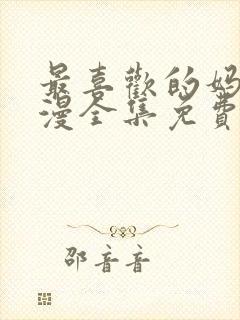 最喜歡的媽
漫全集免費
邵音音